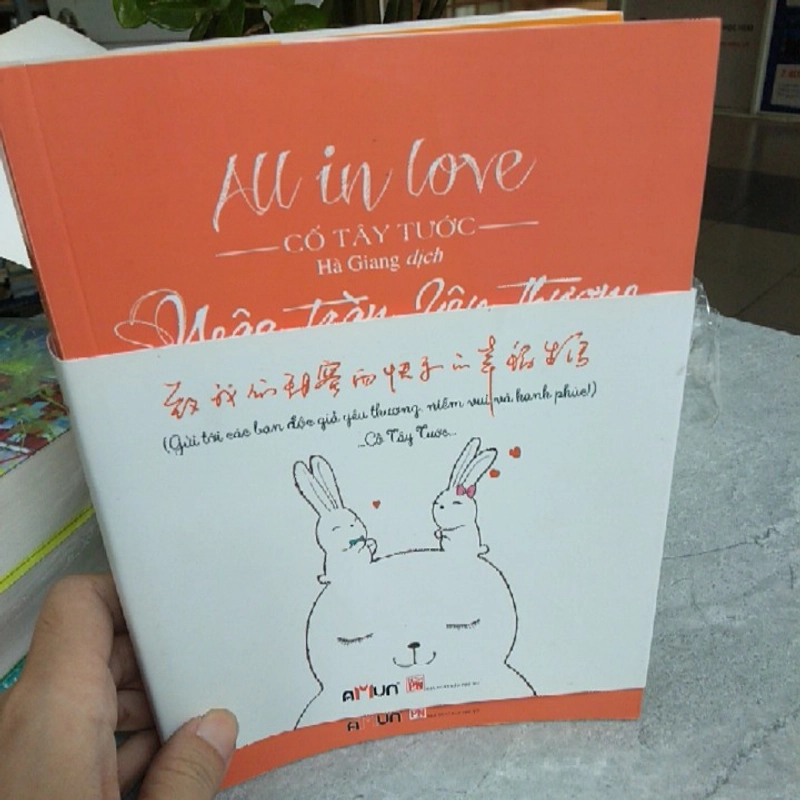 All in love
CỐ TÂY TƯỚC
Hà Giang dịch
Ngập tràn Yêu thương
(Gửi tới các bạn độc giả yêu thương, niềm vui và hạnh phúc!)
...Cố Tây Tước...
AMUN PN
AMUN PN